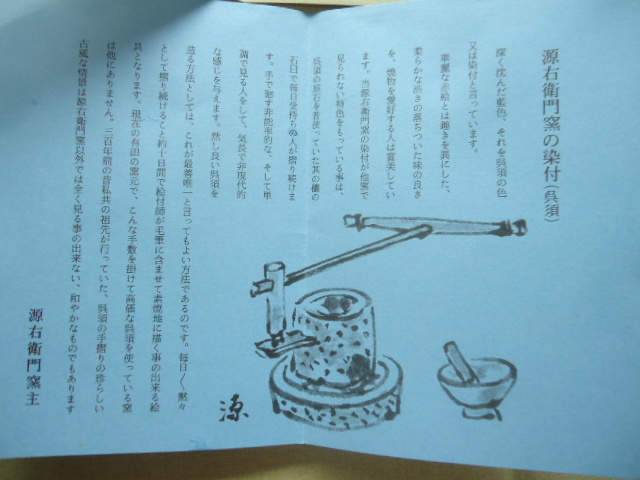 源右衛門窯の染付(呉須)
深く沈んだ藍色、それを呉須の色
又は染付と言っています。
華麗な赤絵とは趣きを異にした、
柔らかな渋さの落ちついた味の良さ
を、焼物を愛好する人は賞美してい
ます。当源右衛門窯の染付が他窯で
見られない特色をもっている事は、
呉須の原石を昔使っていた其の儘の
石臼で毎日受持ちぬ人が摺り続けま
す。手で廻す非能率的な、そして単
調で見る人をして、気長で非現代的
な感じを与えます。然し良い呉須を
造る方法としては、これが最善唯一と言ってもよい方法であるのです。毎日〱黙々
として摺り続けること約十日間で絵付師が毛筆に含ませて素焼地に描く事の出来る絵
具となります。現在の有田の窯元で、こんな手数を掛けて高価な呉須を使っている窯
は他にありません。三百年前の昔私共の祖先が行っていた、呉須の手摺りの珍らしい
古風な情景は源右衛門窯以外では全く見る事の出来ない、和やかなものでもあります
源右衛門窯主
源